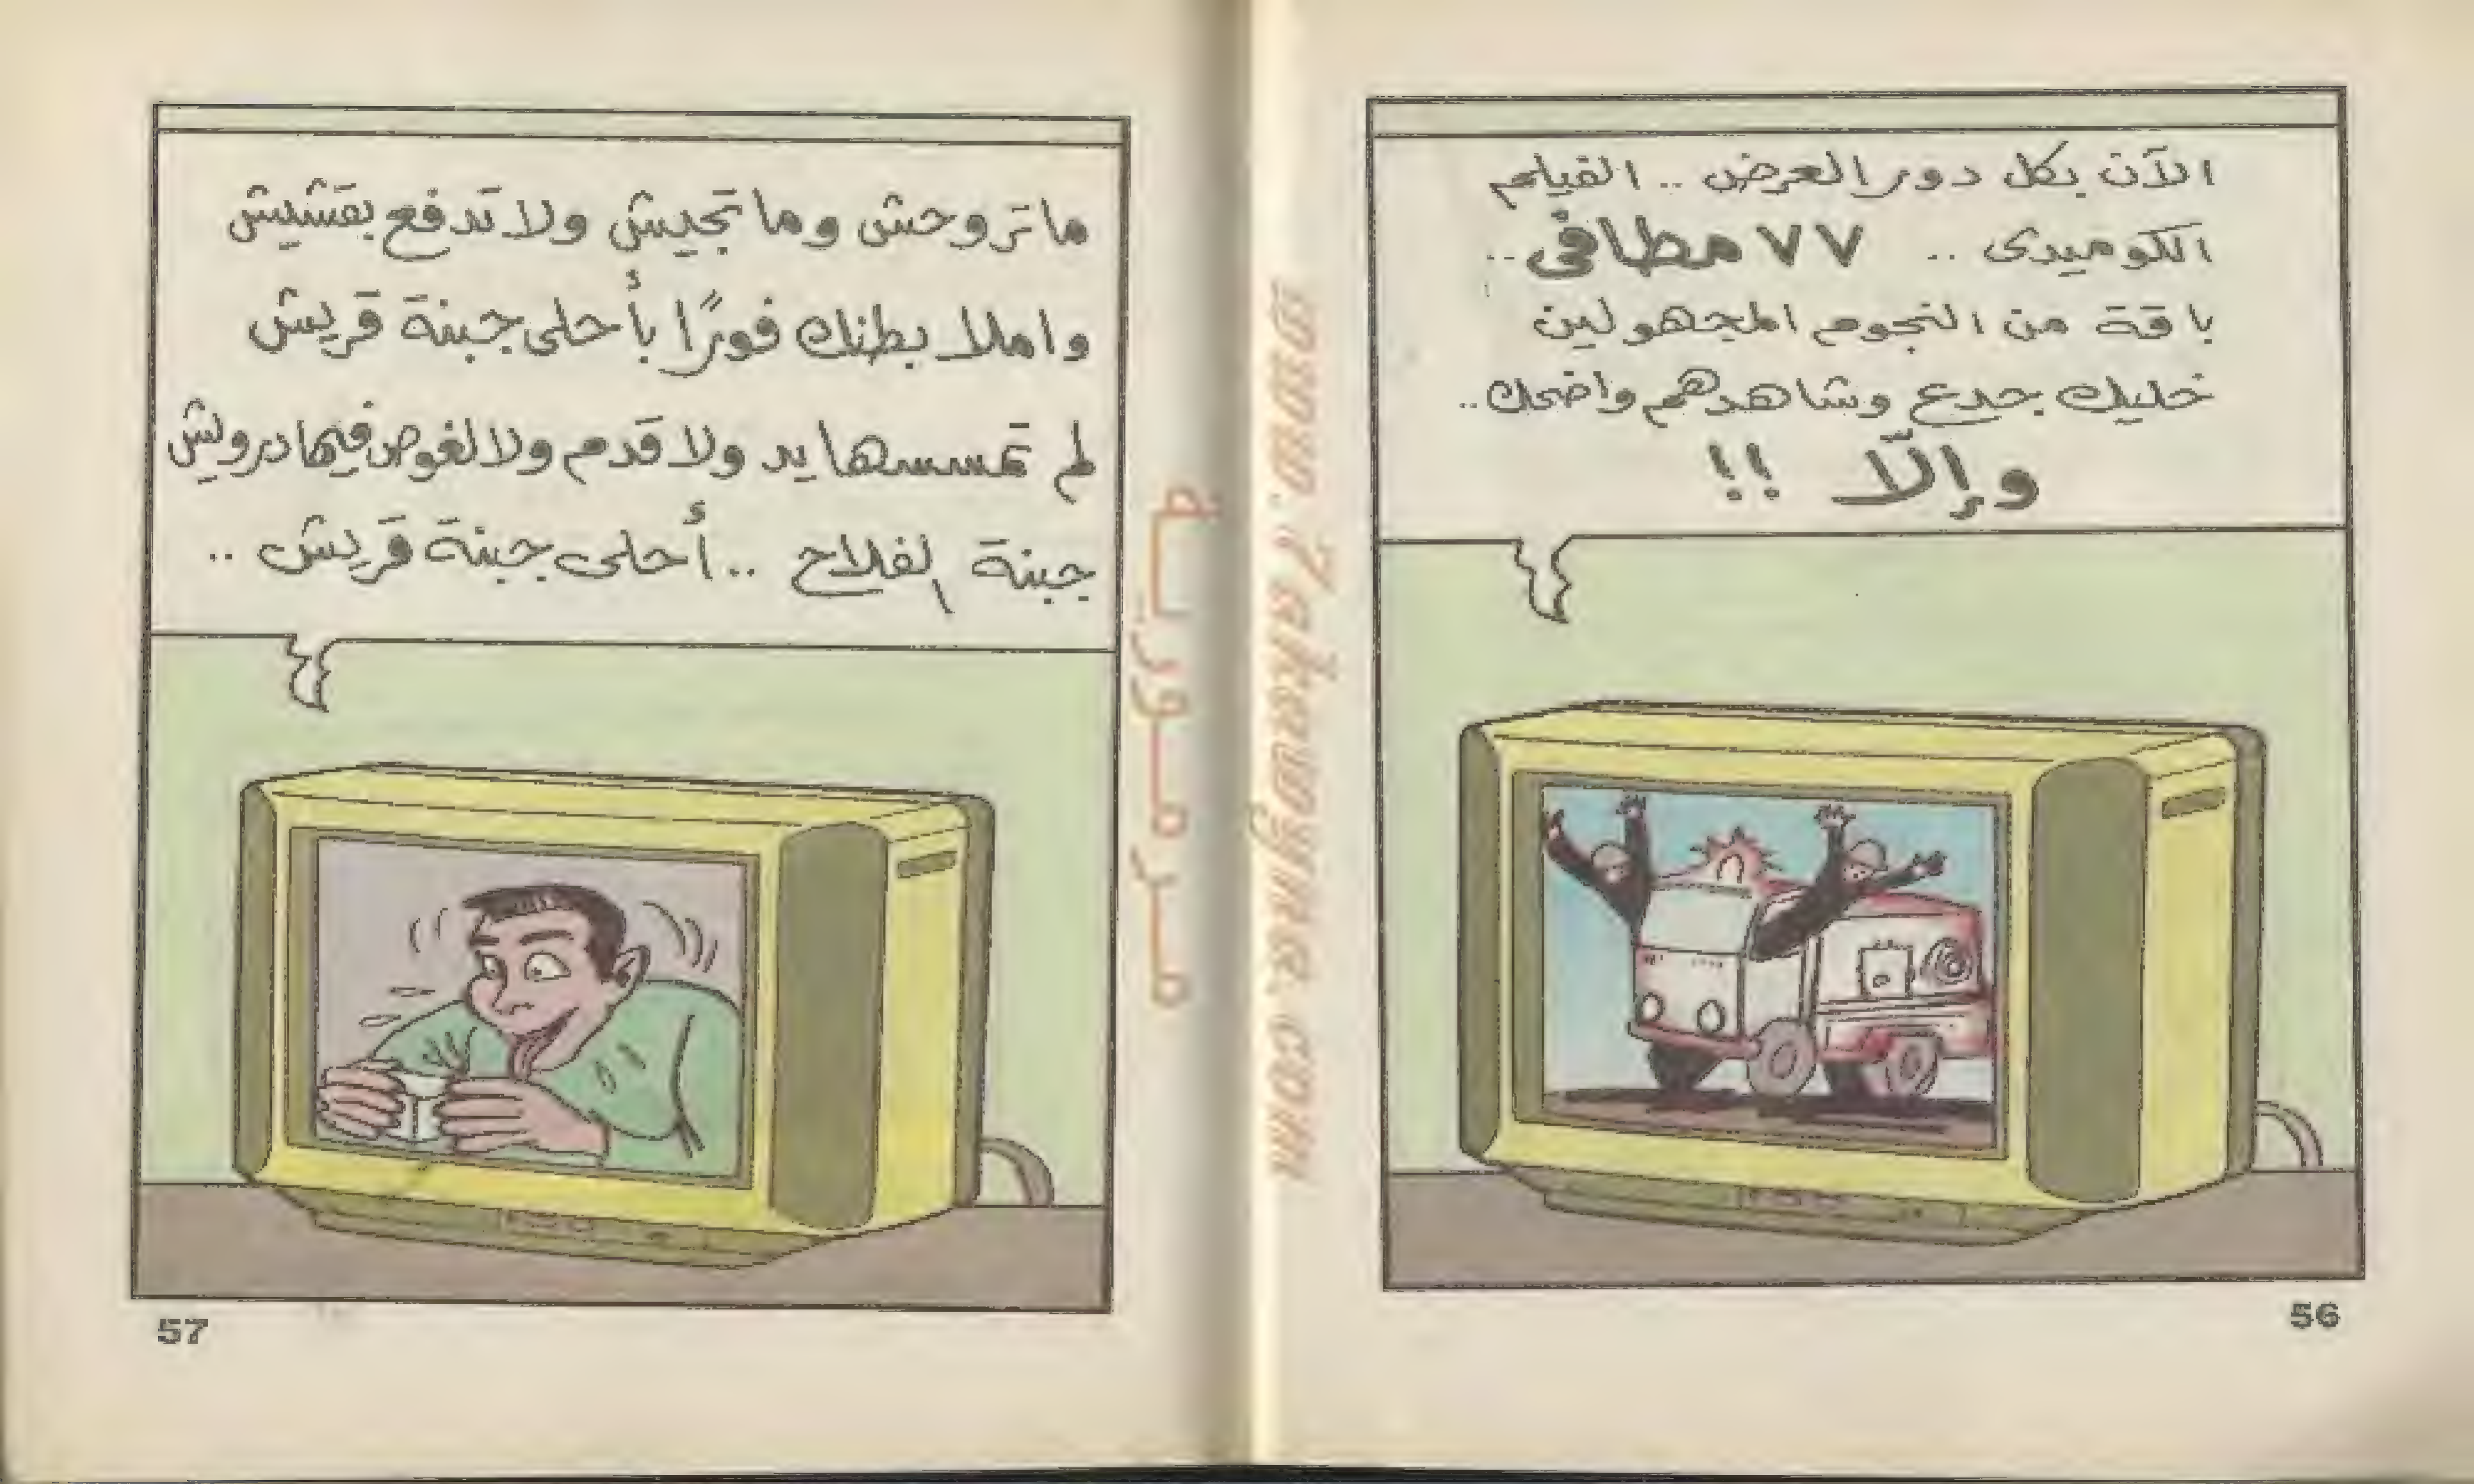 الآن بكل دور العرض .. الفيلم
الكوميدى .. ٧٧ مطافى ..
باقة من النجوم المجهولين
خليك جدع وشاهدهم واضحك ..
وإلّا !!
56
ماتروحش وماتجيش ولا تدفع بقشيش
واملا بطنك فورًا بأحلى جبنة قريش
لم تمسسها يد ولا قدم ولا لغوص فيها درويش
جبنة الفلاح .. أحلى جبنة قريش ..
57
مرمورية
www.7akawyna.com